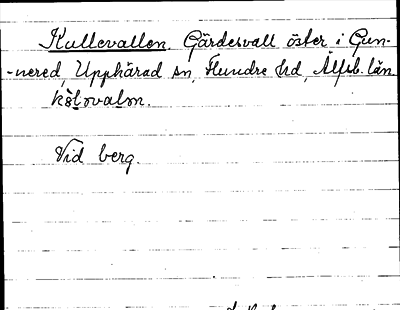 Kullevallen. Gärdesvall öster i Gun-
-nered, Upphärad sn, Flundre hd, Älfsb. län.
kölovalon.
Vid berg.